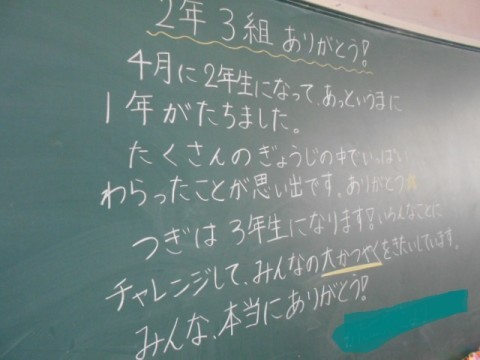 2年3組ありがとう!
4月に2年生になって、あっというまに
1年がたちました。
たくさんのぎょうじの中でいっぱい
わらったことが思い出です。ありがとう
つぎは3年生になります!いろんなことに
チャレンジして、みんなの大かつやくをきたいしています。
みんな、本当にありがとう!